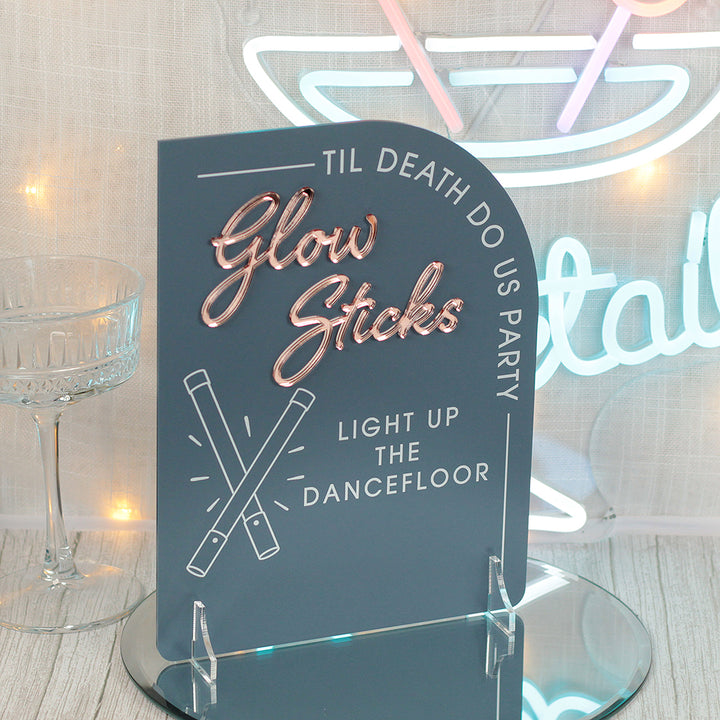 TIL DEATH DO US PARTY
Glow
Sticks
LIGHT UP
THE
DANCEFLOOR